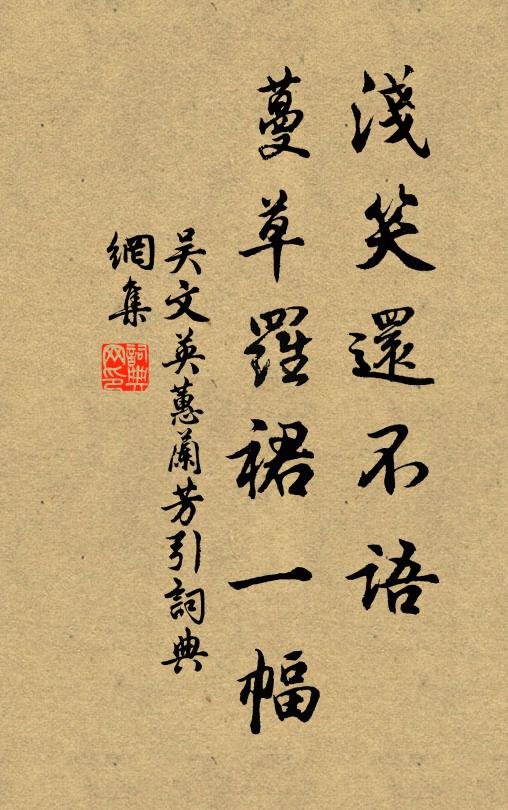 淺笑還不語
蔓草羅裙一幅
吴文英蕙蘭芳引詞典
網集
詞典
网印